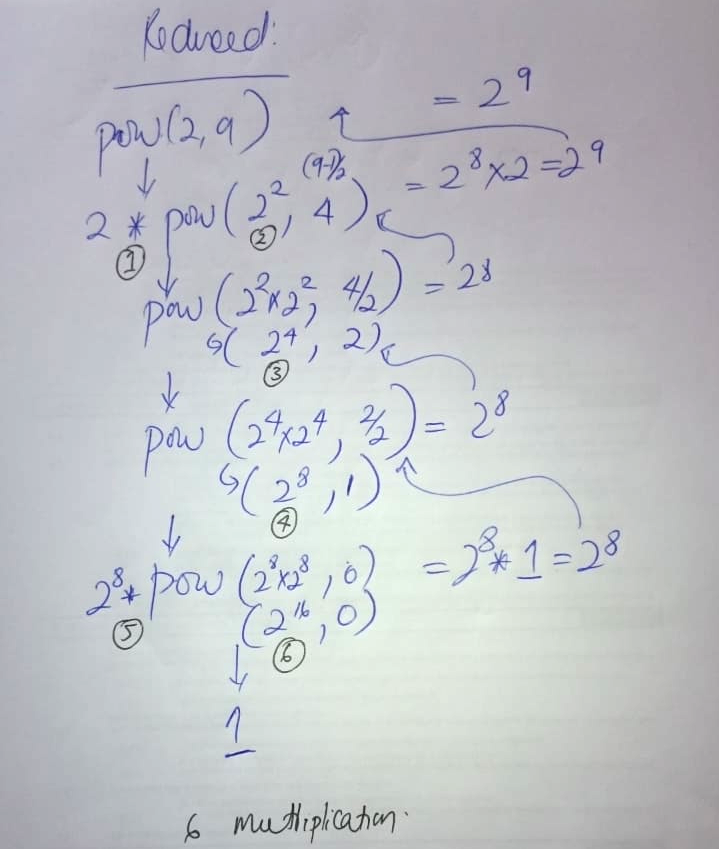 Reduced:
pow(2,9) = 2^9
(9-1)/2
2 * pow(2^2, 4) = 2^8×2=2^9
① ②
pow (2^2×2^2, 4/2) = 2^8
↳( 2^4, 2)
③
pow (2^4×2^4, 2/2) = 2^8
↳( 2^8, 1)
④
2^8* pow (2^8×2^8, 0) = 2^8 * 1 = 2^8
⑤ (2^16, 0)
⑥
1
6 multiplication.